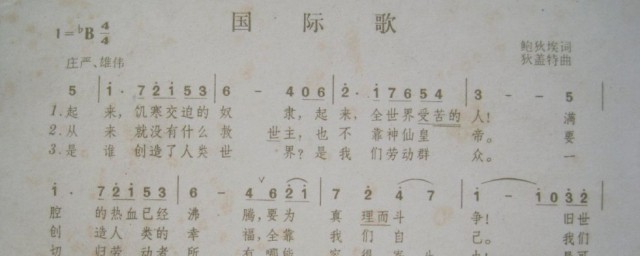 国际歌
1=♭B 4/4
鲍狄埃词
庄严、雄伟
狄盖特曲
5 | 1· 7 2 1 5 3 | 6 - 4 0 6 | 2· 1 7 6 5 4 | 3 - - 5
1.起 来，饥寒交迫的奴 隶，起来，全世界受苦的人！ 满
2.从 来 就没有什么救 世主，也 不 靠神仙皇 帝。 要
3.是 谁 创造了人类世 界？是我 们劳动群 众。 一
1· 7 2 1 5 3 | 6 - 4 6 2 1 | 7 2 4 7 | 1 - - 1 0 3 2
腔 的热血已经沸 腾，要为 真 理而斗 争！ 旧世
创 造人类的幸 福，全靠 我 们自 己。 我
切 归劳动者所